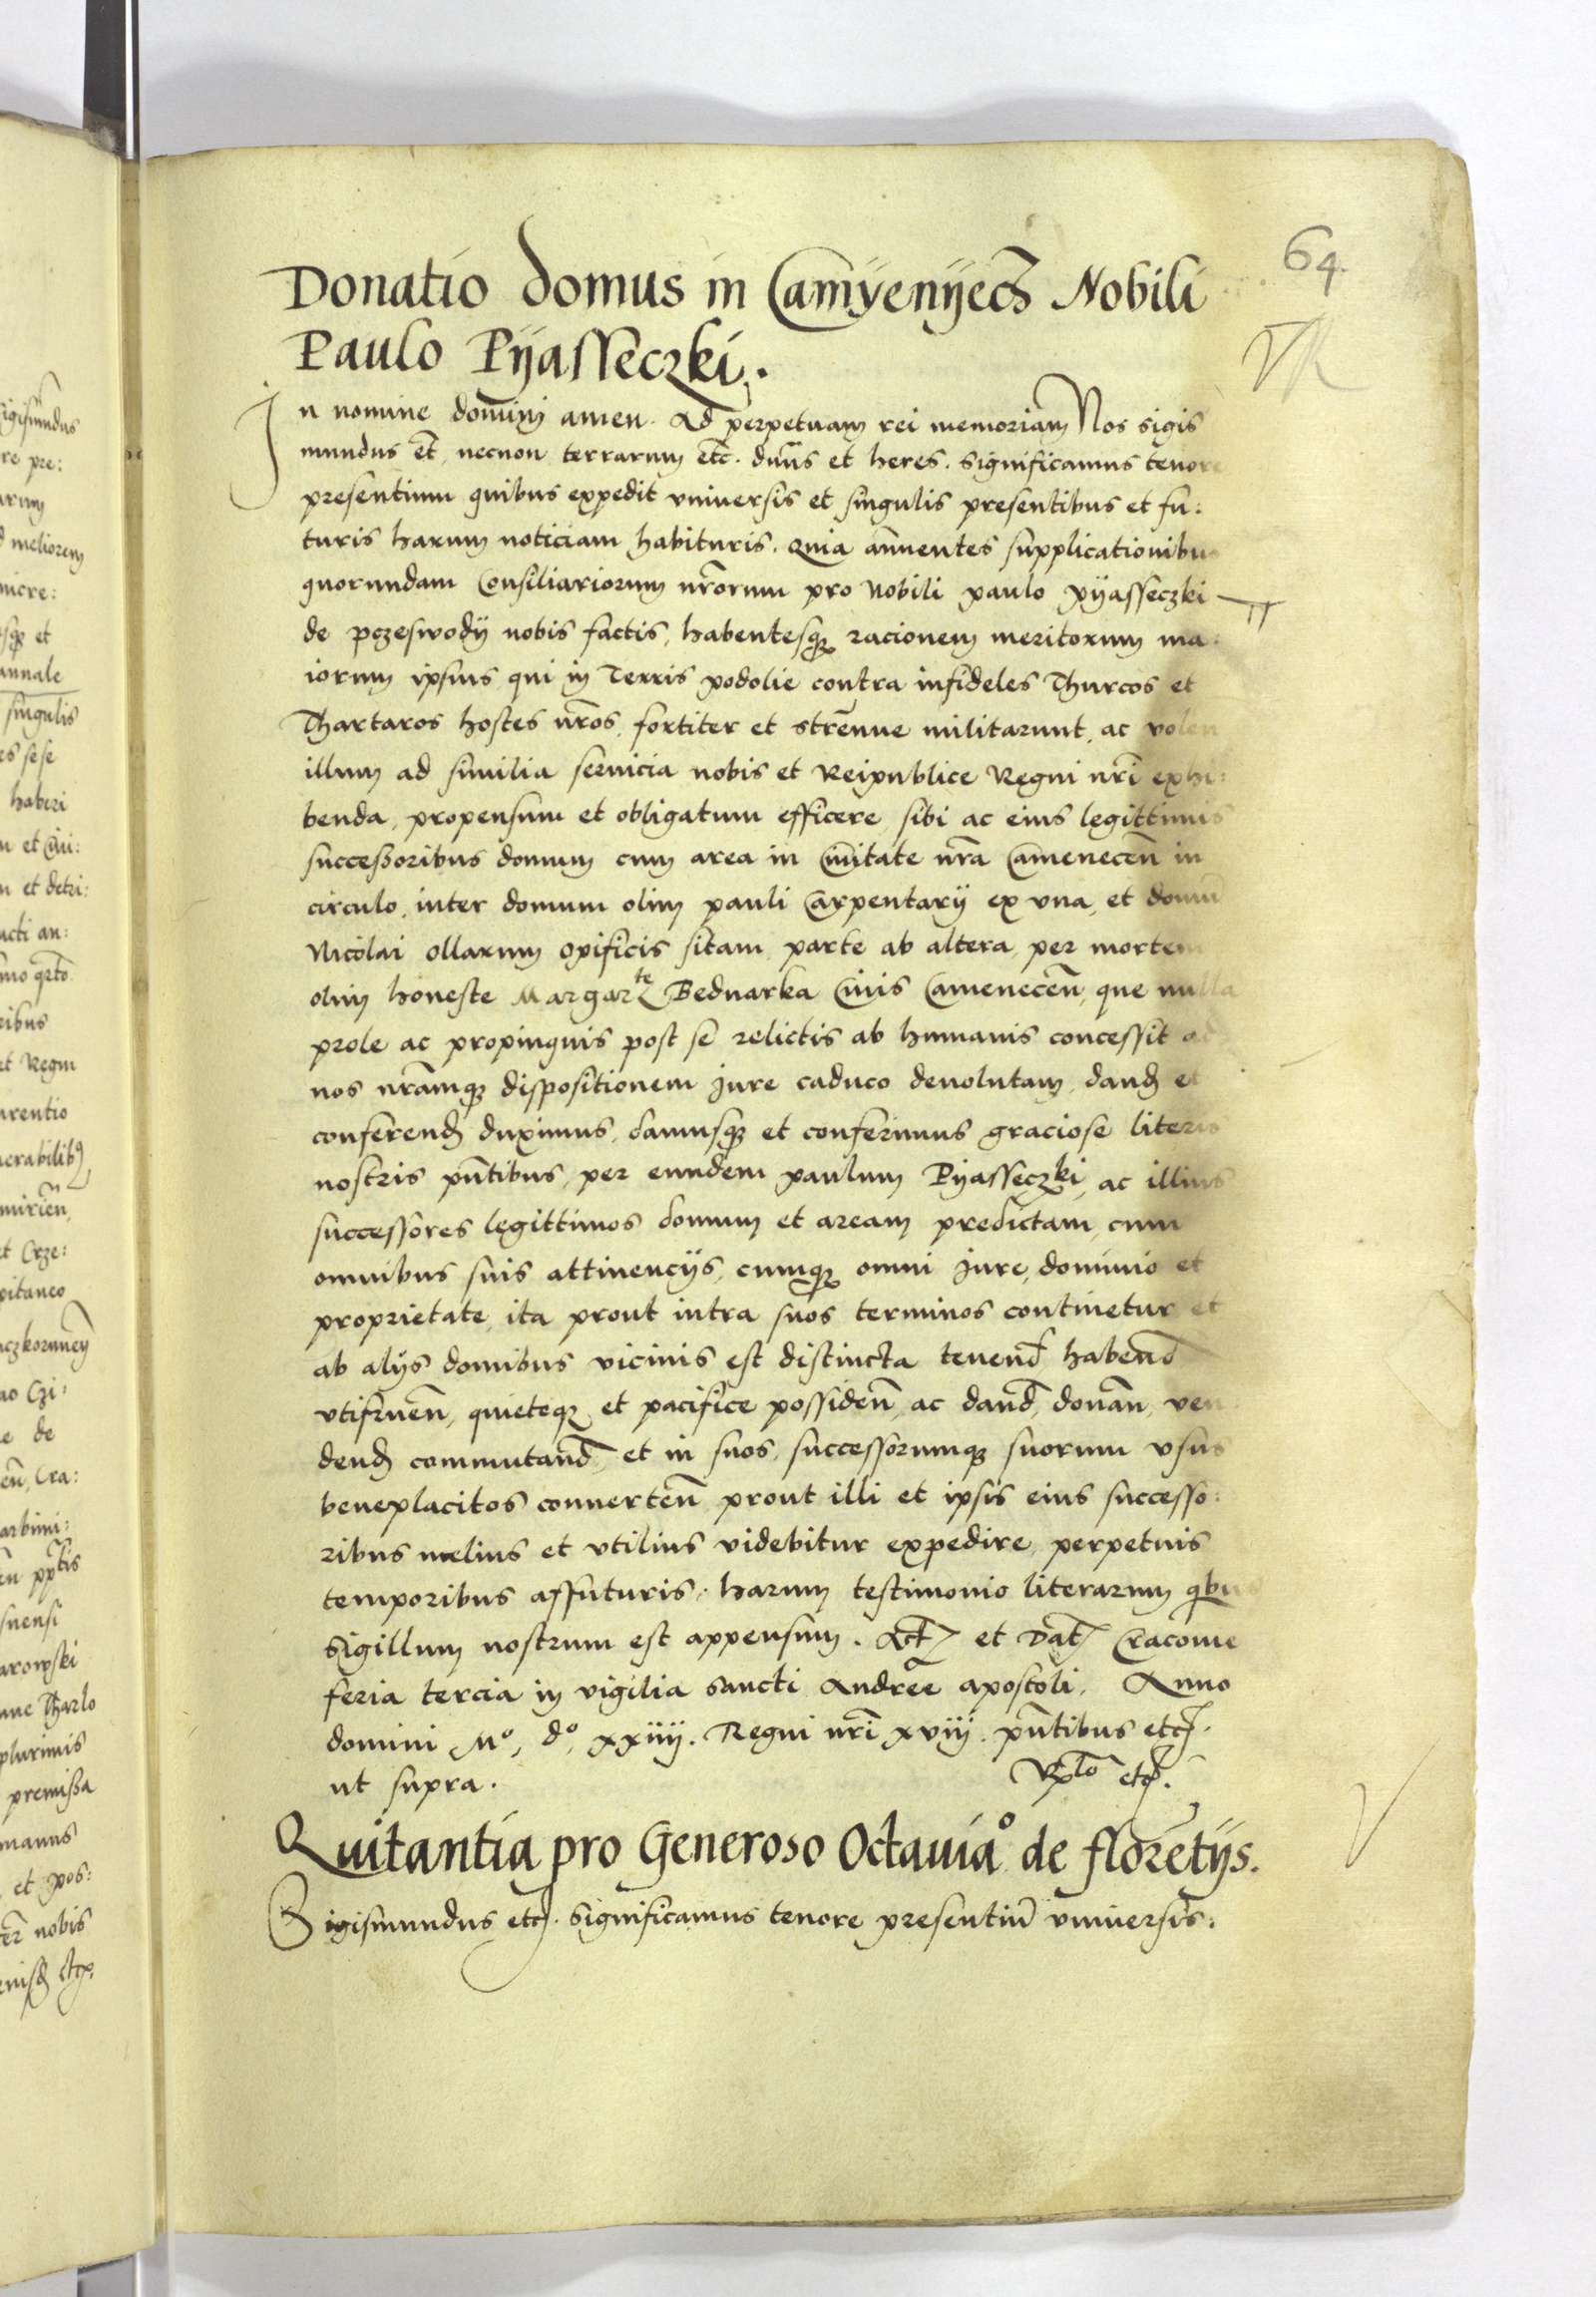 64
Donatio domus in Camyenyecz Nobili
Paulo Pyasseczki.
In nomine domini amen. Ad perpetuam rei memoriam Nos sigis
mundus etc̃ necnon terrarum etc. dñns et heres. Significamus tenore
presentium quibus expedit vniuersis et singulis presentibus et fu:
turis harum noticiam habituris. Quia annuentes supplicationibus
quorundam Consiliariorum nrõrum pro Nobili paulo pyasseczki
de pczeswodij nobis factis, habentesqꝫ racionem meritorum ma:
iorum ipsius qui in Terris podolie contra infideles Thurcos et
Thartaros hostes nrõs, fortiter et strennue militarunt, ac volen
illum ad similia seruicia nobis et Reipublice Regni nrĩ exhi:
benda, propensum et obligatum efficere, sibi ac eius legittimis
successoribus domum cum area in Ciuitate nrã Camenecen̄ in
circulo, inter domum olim pauli Carpentarij ex vna, et domũ
Nicolai ollarum opificis sitam parte ab altera, per mortem
olim honeste Margarᵗᵉ Bednarka Ciuis Camenecen̄, que nulla
prole ac propinquis post se relictis ab humanis concessit ad
nos nrãmqꝫ dispositionem Jure caduco deuolutam, dand et
conferend duximus, damusqꝫ et conferimus graciose literis
nostris pñtibus, per eundem paulum Pyasseczki, ac illius
successores legittimos domum et aream predictam, cum
omnibus suis attinencijs, cumqꝫ omni Jure, dominio et
proprietate, ita prout intra suos terminos continetur et
ab alijs domibus vicinis est distincta tenend habend
vtifruen̄, quieteqꝫ et pacifice possiden̄, ac dand̄, donan̄, ven
dend commutand̄, et in suos, successorumqꝫ suorum vsus
beneplacitos conuerten̄ prout illi et ipsis eius successo:
ribus melius et vtilius videbitur expedire, perpetuis
temporibus affuturis, harum testimonio literarum qꝫbus
Sigillum nostrum est appensum. Act et Dat Cracouie
feria tercia in vigilia Sancti Andree apostoli, Anno
domini Mº, dº, xxiiij. Regni nrĩ xviij. pñtibus etc.
ut supra.
Rꝑlõ etc.
Quitantia pro Generoso Octauiaº de florẽtijs.
Sigismundus etc. Significamus tenore presentiũ vniuersis: